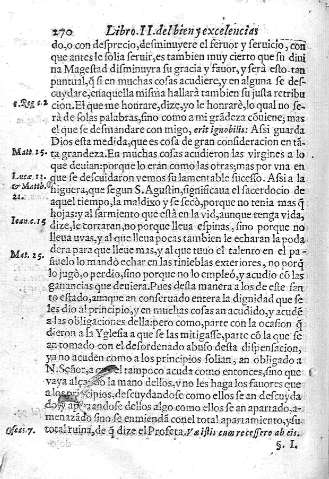 270 Libro. II. del bien y excelencias
do, o con desprecio, desminuyere el feruor y seruicio, con
que antes le solia seruir, es tambien muy cierto que su diui
na Magestad disminuyra su gracia y fauor, y será esto tan
puntual, q̃ si en muchas cosas acudiere, y en alguna se des
cuydare, en aquella misma hallará tambien su justa retribu
1.Reg 2. cion. El que me honrare, dize, yo le honraré, lo qual no se
rá de solas palabras, sino como a mi grãdeza cõuiene; mas
el que se desmandare con migo, erit ignobilis: Assi guarda
Dios esta medida, que es cosa de gran consideracion en tã
Matt. 25. ta grandeza. En muchas cosas acudieron las virgines a lo
que deuian: por que lo erán como las otras; mas por vna en
Luca. 13. que se descuidaron vemos su lamentable sucesso. Assi a la
& Matth. higuera, que segun S. Agustin, significaua el sacerdocio de
21. aquel tiempo, la maldixo y se secò, porque no tenia mas q̃
hojas: y al sarmiento que está en la vid, aunque tenga vida,
Ioan.c.15 dize, le tornaran, no porque lleua espinas, sino porque no
lleua uvas, y al que lleua pocas tambien le echaran la poda
dera para que lleue mas, y al que tuuo el talento en el pa-
Mat. 25. ñuelo lo mandò echar en las tinieblas exteriores, no porq̃
lo jugò, o perdio, sino porque no lo empleó, y acudio cõ las
ganancias que deuiera. Pues desta manera a los de este san
to estado, aunque an conseruado entera la dignidad que se
les dio al principio, y en muchas cosas an acudido, y acudẽ
a las obligaciones della: pero como, parte con la ocasion q̃
dieron a la Yglesia a que se las mitigasse, parte cõ la que se
an tomado con el desordenado abuso desta dispensacion,
ya no acuden como a los principios solian, an obligado a
N. Señor, a que el tampoco acuda como entonces, sino que
vaya alçando la mano dellos, y no les haga los fauores que
a los principios, descuydandose como ellos se an descuyda
do, y apartandose dellos algo como ellos se an apartado, a-
menazãdo sino se emiendã con el total apartamiento, y su
Oseæ. 7. total ruina, de q̃ dize el Profeta. Væ istis cum recessero ab eis.
§. I.